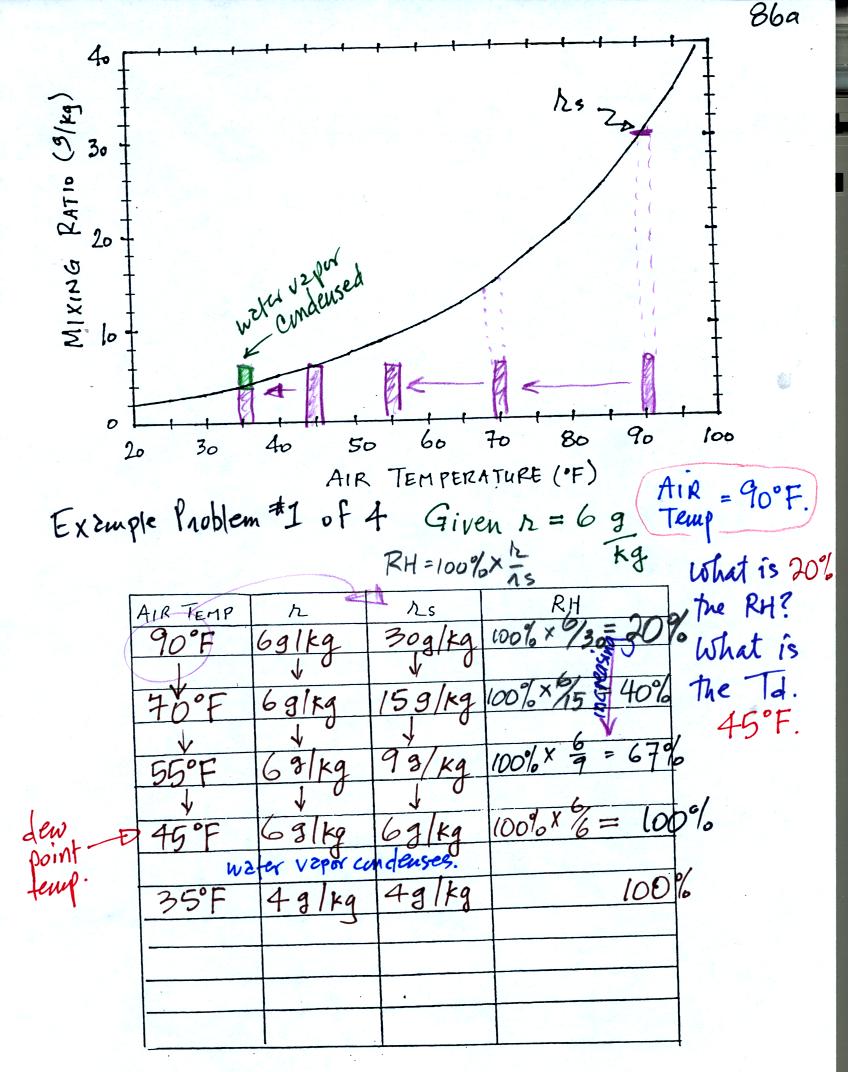 86a
40
30
20
10
0
MIXING RATIO (g/kg)
rs
water vapor
condensed
20 30 40 50 60 70 80 90 100
AIR TEMPERATURE (°F)
Example Problem #1 of 4 Given r = 6 g/kg
AIR Temp = 90°F.
RH = 100% × r/rs
What is 20%
the RH?
What is
the Td.
45°F.
AIR TEMP r rs RH
90°F 6g/kg 30g/kg 100% × 6/30 = 20%
70°F 6g/kg 15g/kg 100% × 6/15 40%
increasing
55°F 6g/kg 9g/kg 100% × 6/9 = 67%
dew
point
temp.
45°F 6g/kg 6g/kg 100% × 6/6 = 100%
water vapor condenses.
35°F 4g/kg 4g/kg 100%